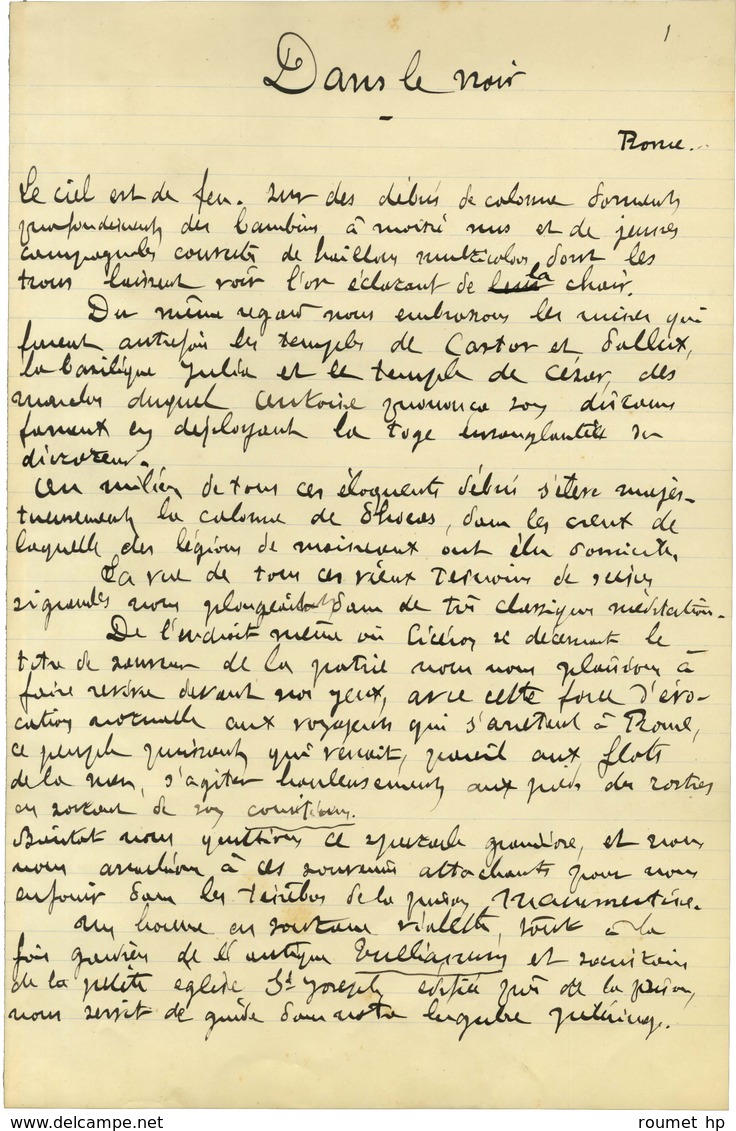 1
Dans le noir
Rome.
Le ciel est de feu. Sur des débris de colonne dorment
profondément des bambins à moitié nus et de jeunes
campagnoles couverts de haillons multicolores dont les
trous laissent voir l'or éclatant de la chair.
Du même regard nous embrassons les ruines qui
furent autrefois les temples de Castor et Pollux,
la basilique Julia et le temple de César, des
marches duquel Antoine prononça son discours
fameux en deployant la toge ensanglantée du
dictateur.
Au milieu de tous ces éloquents débris s'élève majes-
tueusement la colonne de Phocas, dans les creux de
laquelle des légions de moineaux ont élu domicile.
La vue de tous ces vieux témoins de scènes
si grandes nous plongeait dans de très classiques méditations.
De l'endroit même où Cicéron se décernait le
titre de sauveur de la patrie nous nous plaisions à
faire revivre devant nos yeux, avec cette force d'évo-
cation naturelle aux voyageurs qui s'arrêtent à Rome,
ce peuple puissant qui venait, pareil aux flots
de la mer, s'agiter houleusement aux pieds des rostres
en sortant de ses comitiums.
Bientôt nous quittions ce spectacle grandiose, et nous
nous arrachions à ces souvenirs attachants pour nous
enfouir dans les ténèbres de la prison Mamertine.
Un homme en soutane violette, tout à la
fois gardien de l'antique Tullianum et sacristain
de la petite eglise St Joseph, édifiée près de la prison,
nous servit de guide dans notre lugubre pélerinage.
roumet hp